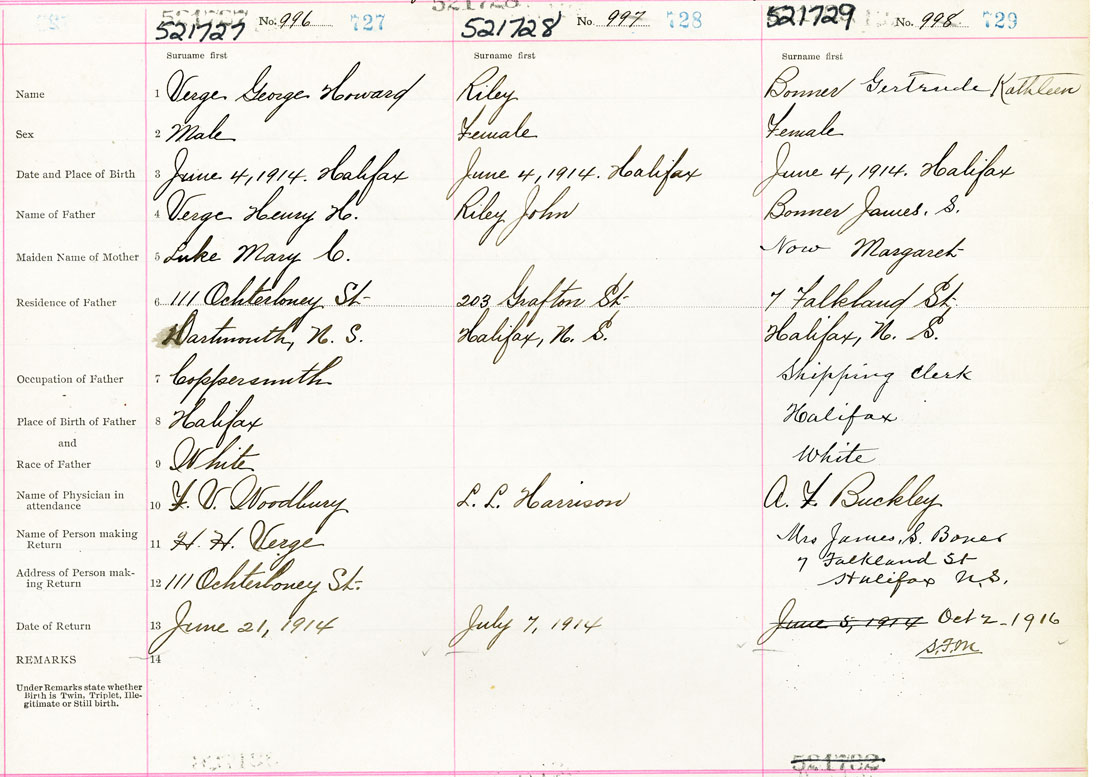 521727 No. 996 727 521728 No. 997 728 521729 No. 998 729
Surname first Surname first Surname first
Name 1 Verge George Howard Riley Bonner Gertrude Kathleen
Sex 2 Male Female Female
Date and Place of Birth 3 June 4, 1914. Halifax June 4, 1914. Halifax June 4, 1914. Halifax
Name of Father 4 Verge Henry H. Riley John Bonner James. S.
Maiden Name of Mother 5 Luke Mary C. Now Margaret
Residence of Father 6 111 Ochterloney St- 203 Grafton St- 7 Falkland St,
Dartmouth, N. S. Halifax, N. S. Halifax, N. S.
Occupation of Father 7 Coppersmith Shipping Clerk
Place of Birth of Father 8 Halifax Halifax
and
Race of Father 9 White White
Name of Physician in
attendance 10 F. V. Woodbury L. L. Harrison A. F Buckley
Name of Person making
Return 11 H. H. Verge Mrs James, S. Boner
7 Falkland St
Address of Person mak-
ing Return 12 111 Ochterloney St- Halifax N.S.
Date of Return 13 June 21, 1914 July 7, 1914 June 8, 1914 Oct 2-1916
S.F.M
REMARKS 14
Under Remarks state whether
Birth is Twin, Triplet, Ille-
gitimate or Still birth.
521732